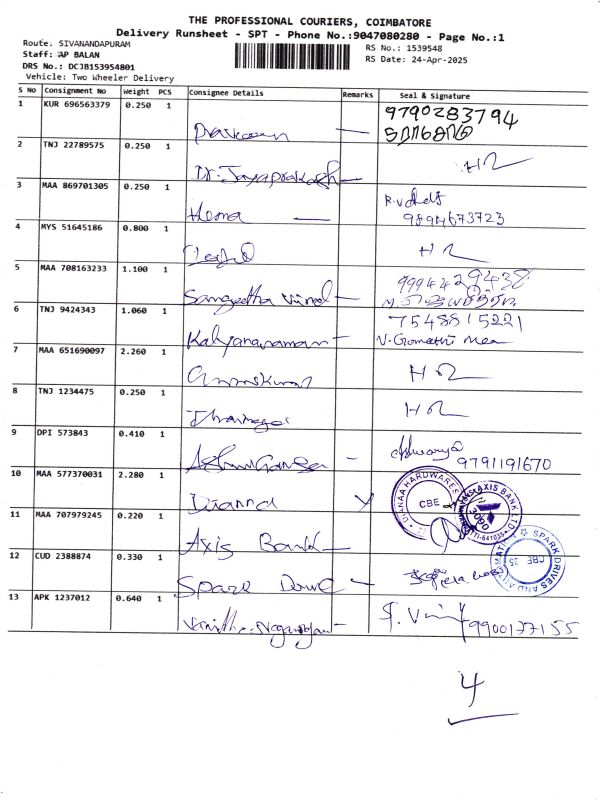 THE PROFESSIONAL COURIERS, COIMBATORE
Delivery Runsheet - SPT - Phone No.:9047080280 - Page No.:1
Route: SIVANANDAPURAM
Staff: AP BALAN
DRS No.: DCJB153954801
Vehicle: Two Wheeler Delivery
RS No.: 1539548
RS Date: 24-Apr-2025
S No Consignment No Weight PCS Consignee Details Remarks Seal & Signature
1 KUR 696563379 0.250 1
9790283794
2 TNJ 22789575 0.250 1
Dr. Jayaprakash
3 MAA 869701305 0.250 1
Hema
9894673723
4 MYS 51645186 0.800 1
5 MAA 708163233 1.100 1
Sangeetha Vinod
9994429438
6 TNJ 9424343 1.060 1
Kalyanaraman
7548815221
V. Gomathi Mea
7 MAA 651690097 2.260 1
8 TNJ 1234475 0.250 1
9 DPI 573843 0.410 1
9791191670
10 MAA 577370031 2.280 1
Dianna
DIANAA HARDWARES
CBE
11 MAA 707979245 0.220 1
Axis Bank
AXIS BANK LTD
12 CUD 2388874 0.330 1
Spark Drive
SPARK DRIVES AND AUTOMATION
CBE 35
13 APK 1237012 0.640 1
Vanitha Nagarajan
9900177155
4